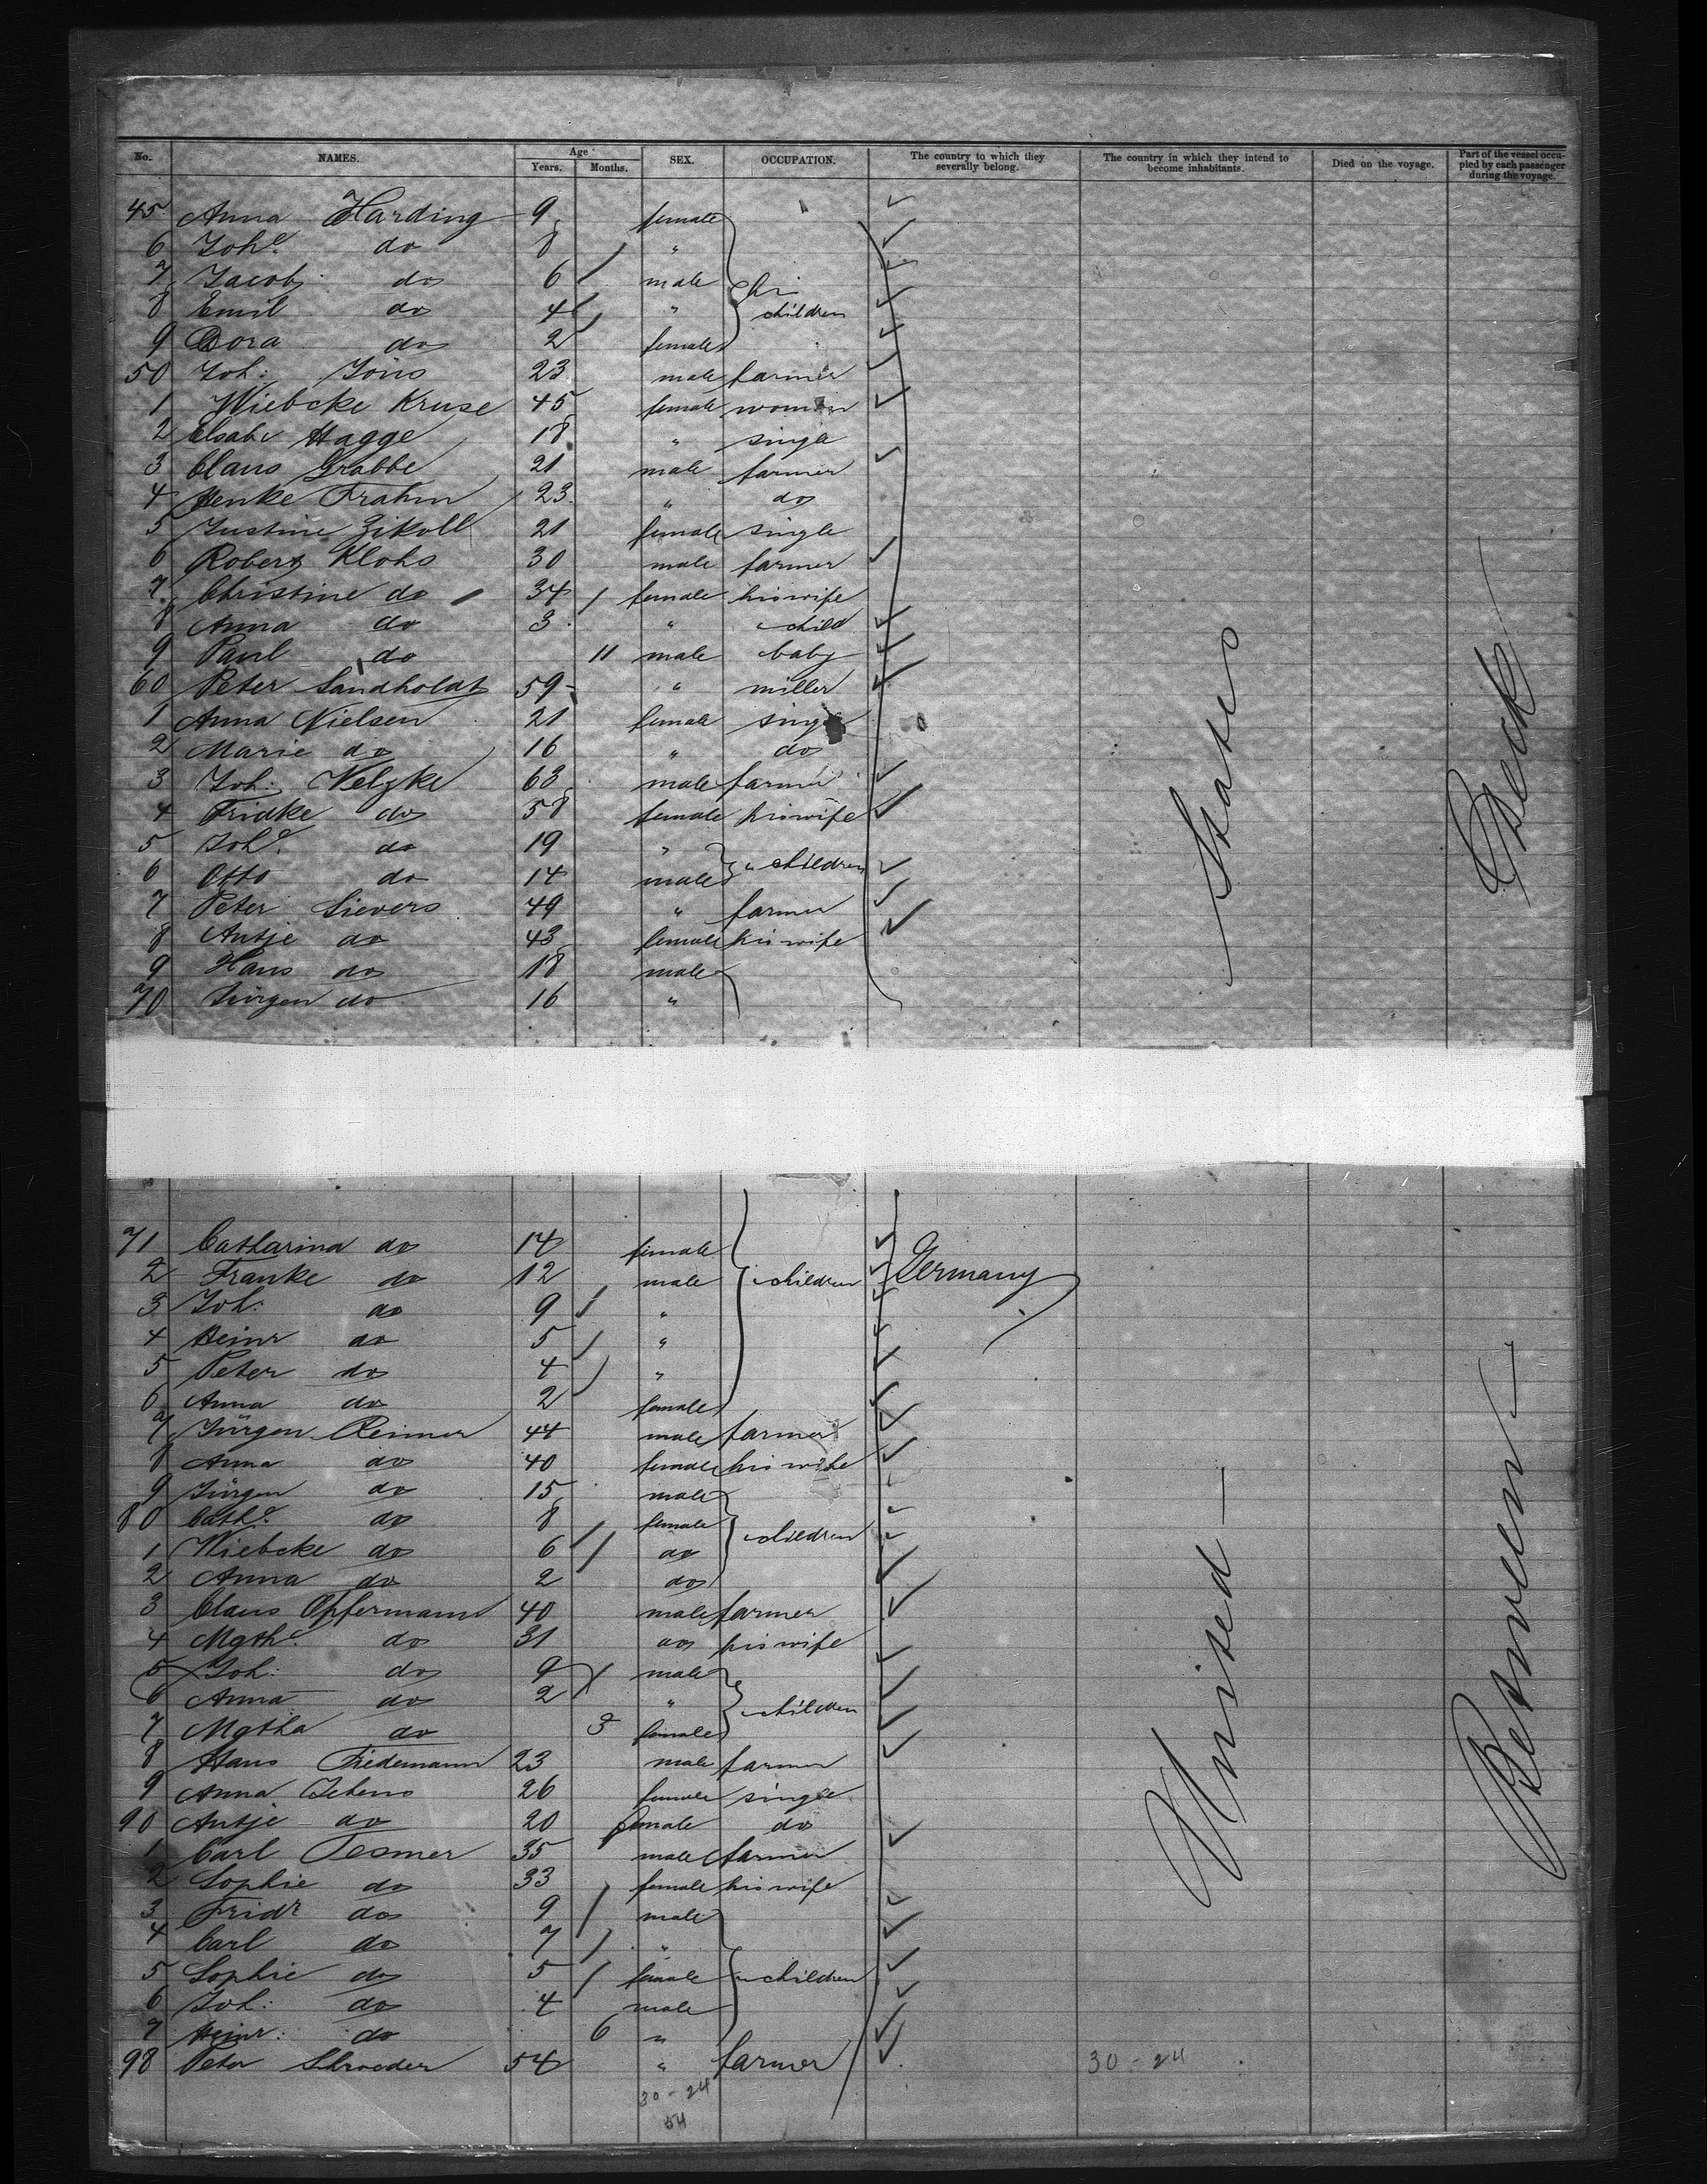 No. NAMES. Age Years. Months. SEX. OCCUPATION. The country to which they severally belong. The country in which they intend to become inhabitants. Died on the voyage. Part of the vessel occupied by each passenger during the voyage.
45 Anna Harding 9 female
6 Joh.e do 8 "
7 Jacob do 6 male
8 Emil do 4 " children
9 Dora do 2 female
50 Joh: Jöns 23 male farmer
1 Wiebcke Kruse 45 female woman
2 Elsabe Hagge 18 " single
3 Claus Grabbe 21 male farmer
4 Henke Frahm 23 " do
5 Justine Zikoll 21 female single
6 Robert Klohs 30 male farmer
7 Christine do 34 female his wife
8 Anna do 3 " child
9 Paul do 11 male baby
60 Peter Sandholdt 59 " miller
1 Anna Nielsen 21 female single
2 Marie do 16 " do
3 Joh: Velzke 63 male farmer
4 Fridke do 58 female his wife
5 Joh.e do 19 " children
6 Otto do 14 male
7 Peter Sievers 49 " farmer
8 Antje do 43 female his wife
9 Hans do 18 male
70 Jürgen do 16 "
71 Catharina do 14 female
2 Franke do 12 male children Germany
3 Joh: do 9 "
4 Heinr do 5 "
5 Peter do 4 "
6 Anna do 2 female
7 Jürgen Reimer 44 male farmer
8 Anna do 40 female his wife
9 Jürgen do 15 male
80 Cath.e do 8 female children
1 Wiebcke do 6 do
2 Anna do 2 do
3 Claus Opfermann 40 male farmer
4 Mgth.e do 31 do his wife
5 Joh: do 9 male
6 Anna do 2 " children
7 Mgtha do 3 female
8 Hans Tiedemann 23 male farmer
9 Anna Jebens 26 female single
90 Antje do 20 female do
1 Carl Tesmer 35 male farmer
2 Sophie do 33 female his wife
3 Fridr do 9 male
4 Carl do 7 "
5 Sophie do 5 female children
6 Joh: do 4 male
7 Heinr: do 6 "
98 Peter Schroeder 54 " farmer 30-24
30-24
54
United States
Between Deck